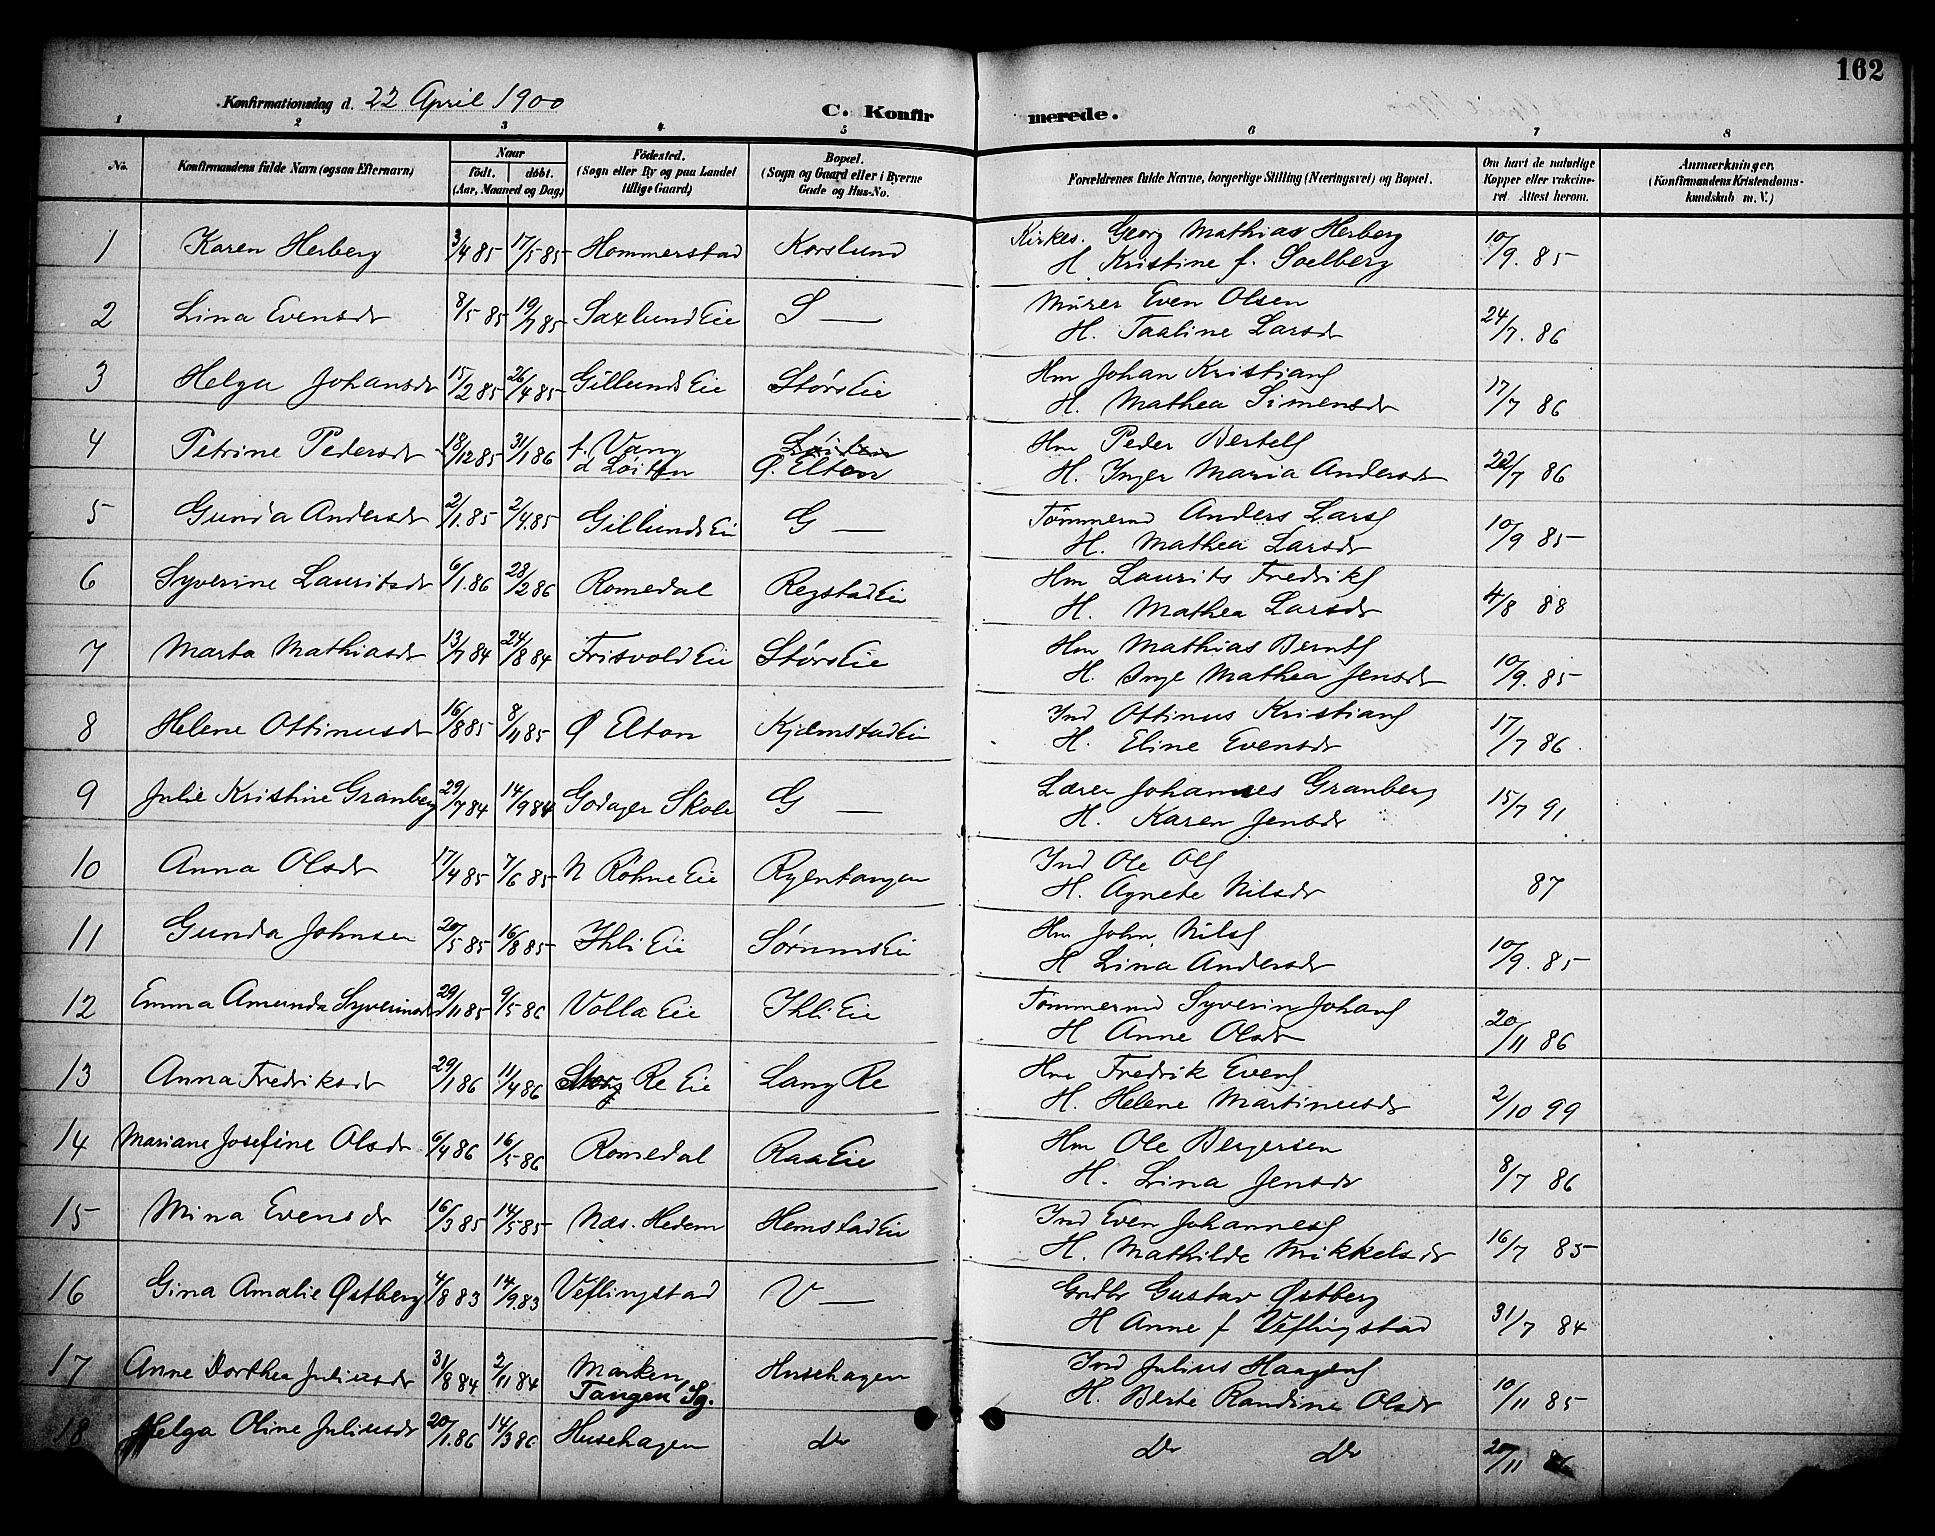 162
Konfirmationsdag d. 22 April 1900
C. Konfirmerede.
1 2 3 4 5 6 7 8
No. Konfirmandens fulde Navn (ogsaa Efternavn) Naar født. døbt. (Aar, Maaned og Dag) Fødested. (Sogn eller By og paa Landet tillige Gaard) Bopæl. (Sogn og Gaard eller i Byerne Gade og Hus-No. Forældrenes fulde Navne, borgerlige Stilling (Næringsvei) og Bopæl. Om havt de naturlige Kopper eller vakcineret. Attest herom. Anmærkninger. (Konfirmandens Kristendomskundskab m. V.)
1 Karen Herberg 3/4 85 17/5 85 Hommerstad Korslund Kirkes. Georg Mathias Herberg 10/9. 85
H. Kristine f. Soelberg
2 Lina Evensdr 8/5 85 19/7 85 Saxlund Eie S — Murer Even Olsen 24/7. 86
H. Taaline Larsdr
3 Helga Johansdr 15/2 85 26/4 85 Gillunds Eie Størs Eie Hm Johan Kristians 17/7 86
H. Mathea Simensdr
4 Petrine Pedersdr 18/12 85 31/1 86 f. Vang Løiten Hm Peder Bertels 22/7 86
d Løiten Ø. Elton H. Inger Maria Andersdr
5 Gunda Andersdr 2/1. 85 2/4. 85 Gillunds Ei G — Tømmermd Anders Lars 10/9 85
H. Mathea Larsdr
6 Syverine Lauritsdr 6/1. 86 28/2 86 Romedal Regstad Ei Hm Laurits Fredriks 4/8 88
H. Mathea Larsdr
7 Marta Mathiasdr 13/7 84 24/8 84 Frisvold Eie Størs Eie Hm Mathias Bernts 10/9. 85
H. Inge Mathea Jensdr
8 Helene Ottinusdr 16/8 85 8/11 85 Ø Elton Kjelmstad Ei Ind Ottinus Kristians 17/7 86.
H. Eline Evensdr
9 Julie Kristine Granberg 29/7 84 14/9 84 Godager Skole G — Lærer Johannes Granberg 15/7 91
H. Karen Jensdr
10 Anna Olsdr 17/4 85 7/6 85 N Røhne Eie Ryentangen Ind Ole Ols 87
H. Agnete Nilsdr
11 Gunda Johnsen 20/5 85 16/8 85 Ihli Eie Sørums Ei Hm John Nils 10/9. 85
H Lina Andersdr
12 Emma Amunda Syverinsdr 29/11 85 9/5 86 Volla Eie Ihli Eie Tømmermd Syverin Johans 20/11 86
H Anne Olsdr
13 Anna Fredriksdr 29/1 86 11/4 86 Re Eie Lang Re Hm Fredrik Evens 2/10 99
H. Helene Martinusdr
14 Mariane Josefine Olsdr 6/4 86 16/5 86 Romedal Raa Eie Hm Ole Bergersen 8/7 86
H. Lina Jensdr
15 Mina Evensdr 16/3 85 14/5 85 Næs. Hedem Hemstad Ei Ind Even Johannes 16/7 85
H. Mathilde Mikkelsdr
16 Gina Amalie Østberg 4/8 83 14/9. 83 Veflingstad V — Grdbr Gustav Østberg 31/7 84
H Anne f Veflingstad
17 Anne Dorthea Juliusdr 31/8 84 2/11 84 Marken, Husehagen Ind Julius Haagens 10/11 85
Tangen Sg. H. Berte Randine Olsdr
18 Helga Oline Juliusdr 20/1. 86 14/3 86 Husehagen Do Do Do 20/11 86